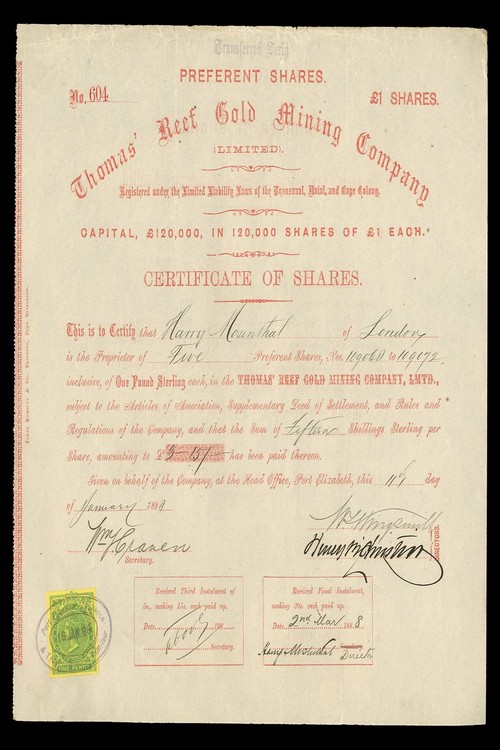 Transferred Scrip
PREFERENT SHARES.
No. 604
£1 SHARES.
Thomas' Reef Gold Mining Company
(LIMITED).
Registered under the Limited Liability Laws of the Transvaal, Natal, and Cape Colony.
CAPITAL, £120,000, IN 120,000 SHARES OF £1 EACH.*
CERTIFICATE OF SHARES.
This is to Certify that Harry Mosenthal of London
is the Proprietor of Five Preferent Shares, Nos. to 119072
inclusive, of One Pound Sterling each, in the THOMAS' REEF GOLD MINING COMPANY, LMTD.,
subject to the Articles of Association, Supplementary Deed of Settlement, and Rules and *
Regulations of the Company, and that the Sum of Fifteen Shillings Sterling per
Share, amounting to £3-15/- has been paid thereon.
Given on behalf of the Company, at the Head Office, Port Elizabeth, this day
of January 188
Wm J Craven
Secretary.
DIRECTORS.
Received Third Instalment of
5s., making 15s. each paid up.
Date 188
Secretary.
Received Final Instalment,
making 20s. each paid up.
Date 2nd Mar 1888
Harry Mosenthal
Director
ONE PENNY